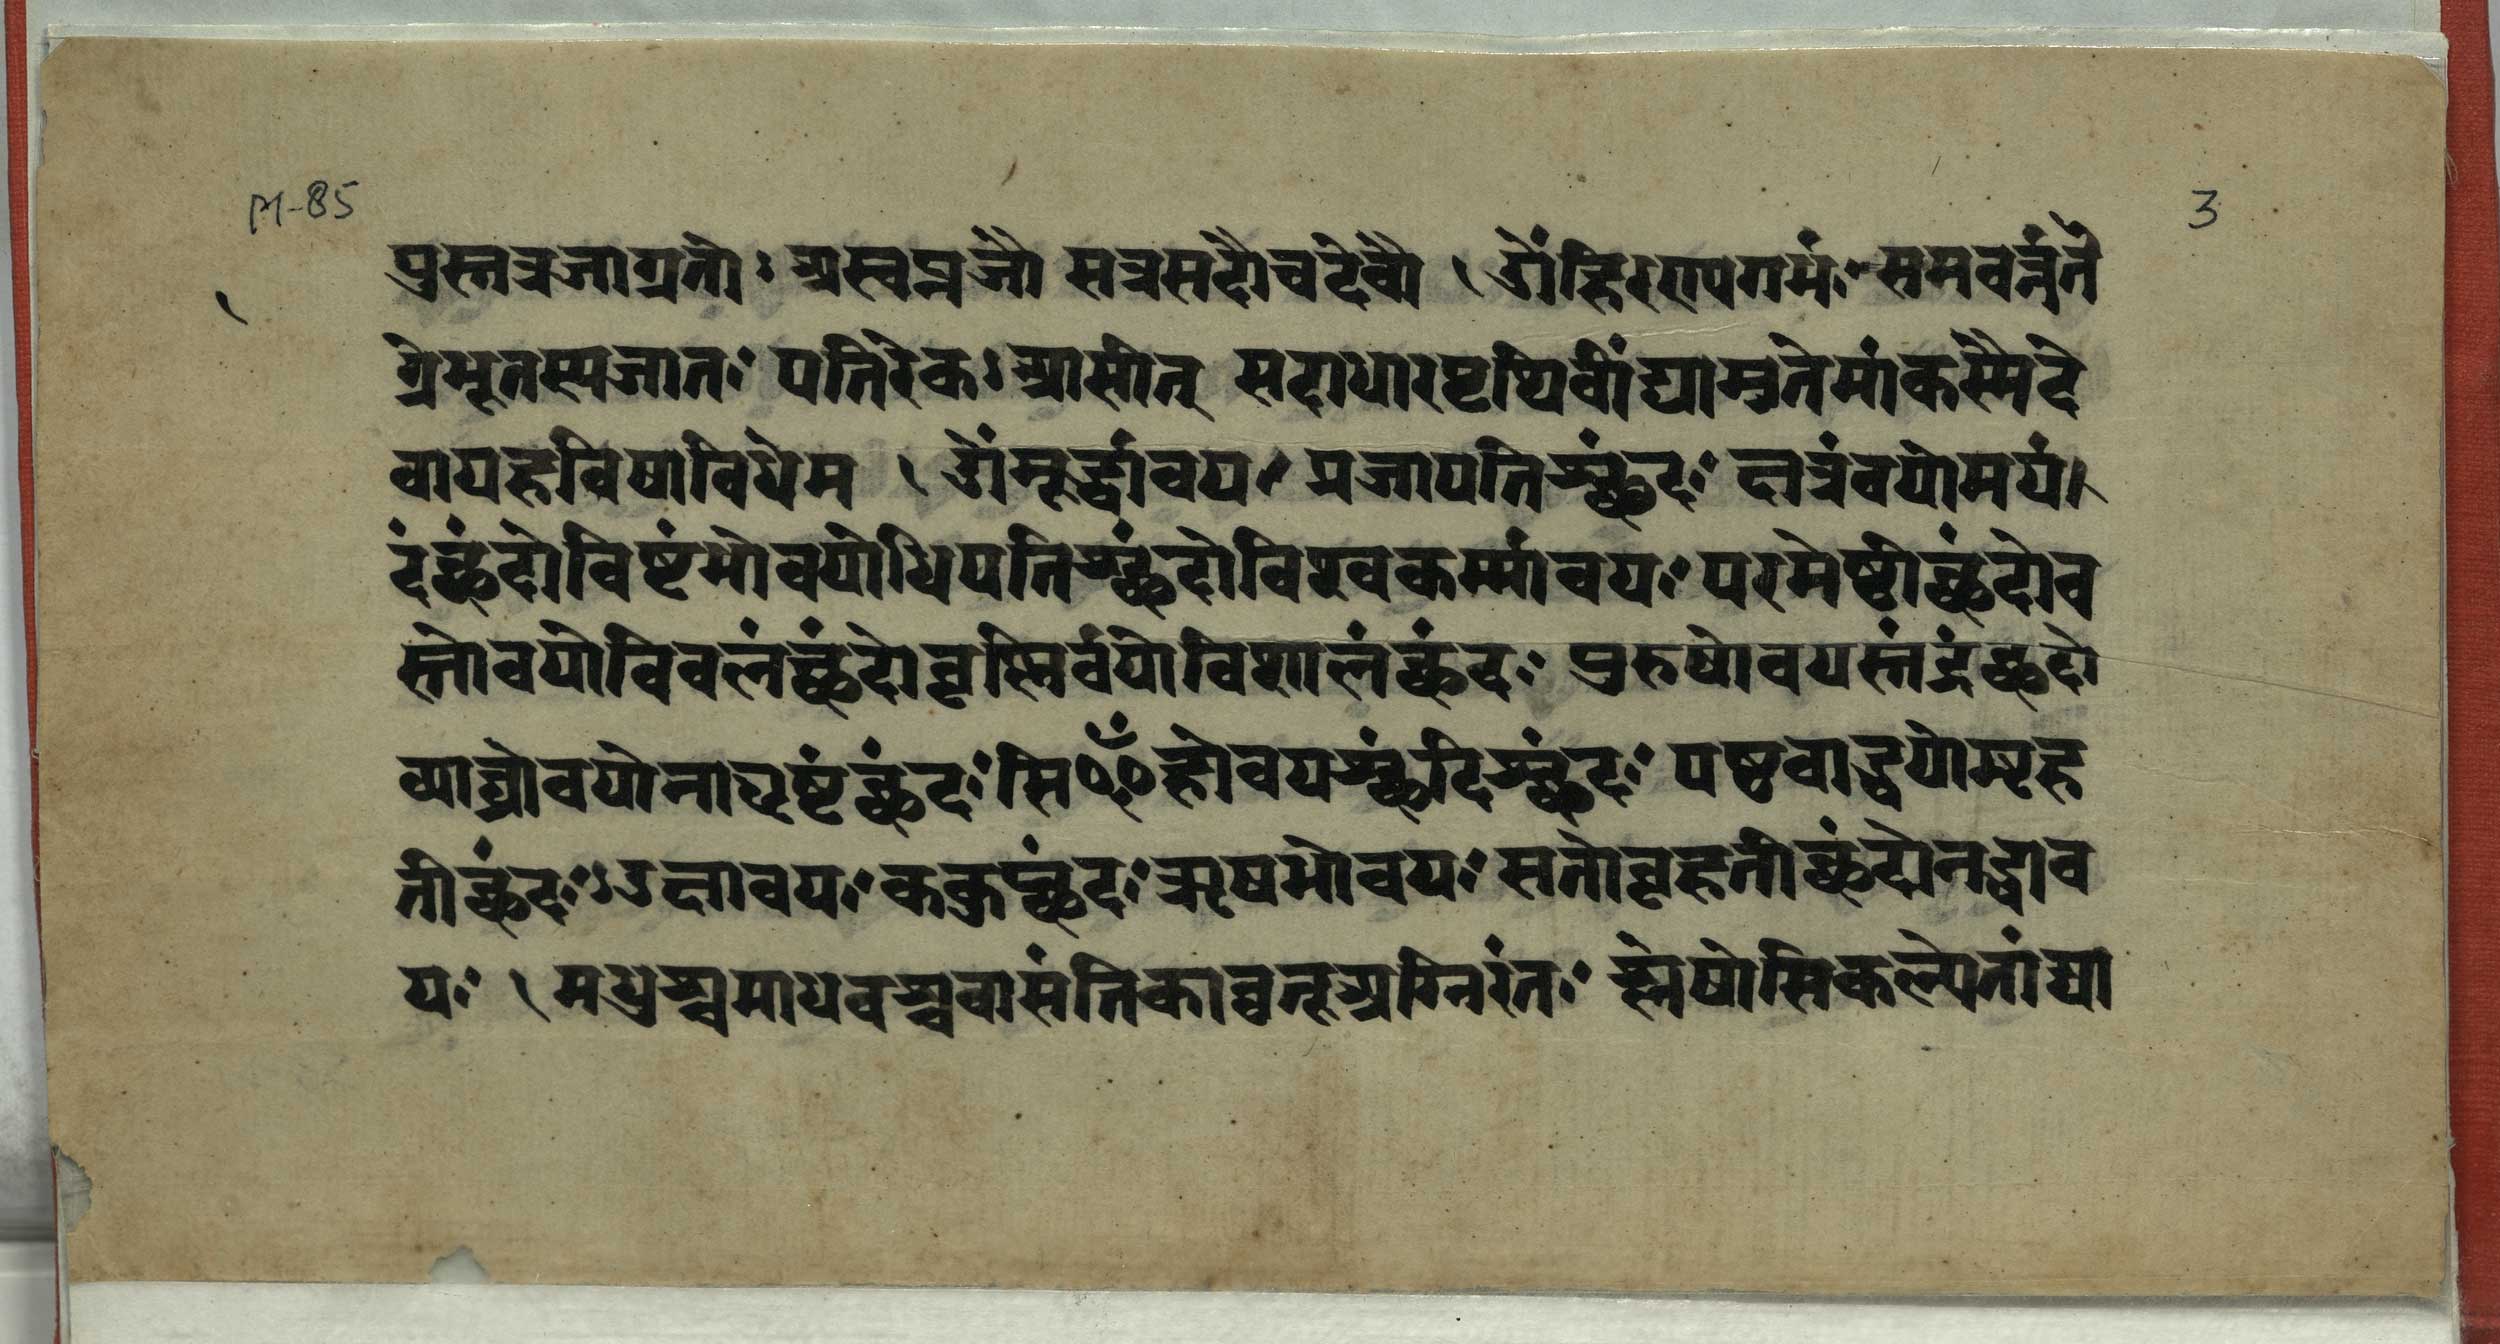 M-85
3
पुस्तत्रजागृतोः अस्वप्नजौ सत्रसदौचदेवौ । ॐहिरण्यगर्भः समवर्त्तता
ग्रेभूतस्यजातः पतिरेकःआसीत् सदाधारपृथिवींद्यामुतेमांकस्मैदे
वायहविषाविधेम । ॐमूर्द्धावयः प्रजापतिश्छंदः क्षत्रंवयोमयं।
दंछंदोविष्टंभोवयोधिपतिश्छंदोविश्वकर्म्मावयः परमेष्ठीछंदोव
स्तोवयोविवलंछंदोवृस्निर्वयोविशालंछंदः पुरुषोवयस्तंद्रंछदो
व्याघ्रोवयोनाधृष्टंछंदः सिꣳहोवयश्छदिश्छंदः पष्ठवाड्वयोमृह
तीछंदः उक्षावयः ककुप्छंदः ऋषभोवयः सतोवृहतीछंदोनड्वाव
यः । मधुश्चमाधवश्चवासंतिकावृतूअग्निरंतः श्लेषोसिकल्पेतांद्या